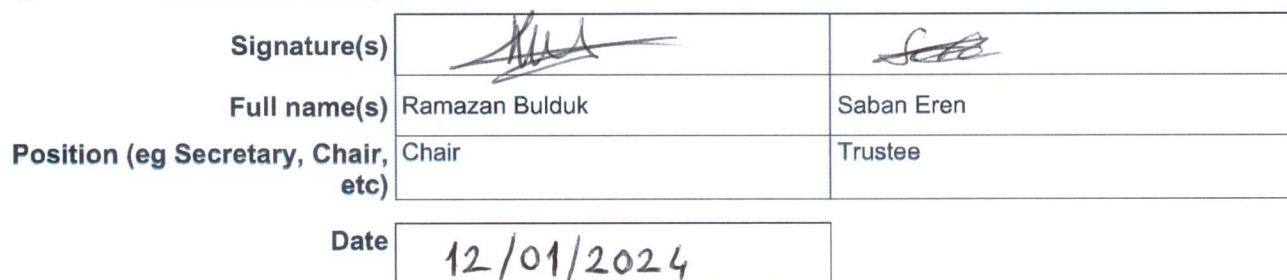 Signature(s)
Full name(s) Ramazan Bulduk Saban Eren
Position (eg Secretary, Chair, Chair Trustee
etc)
Date 12/01/2024